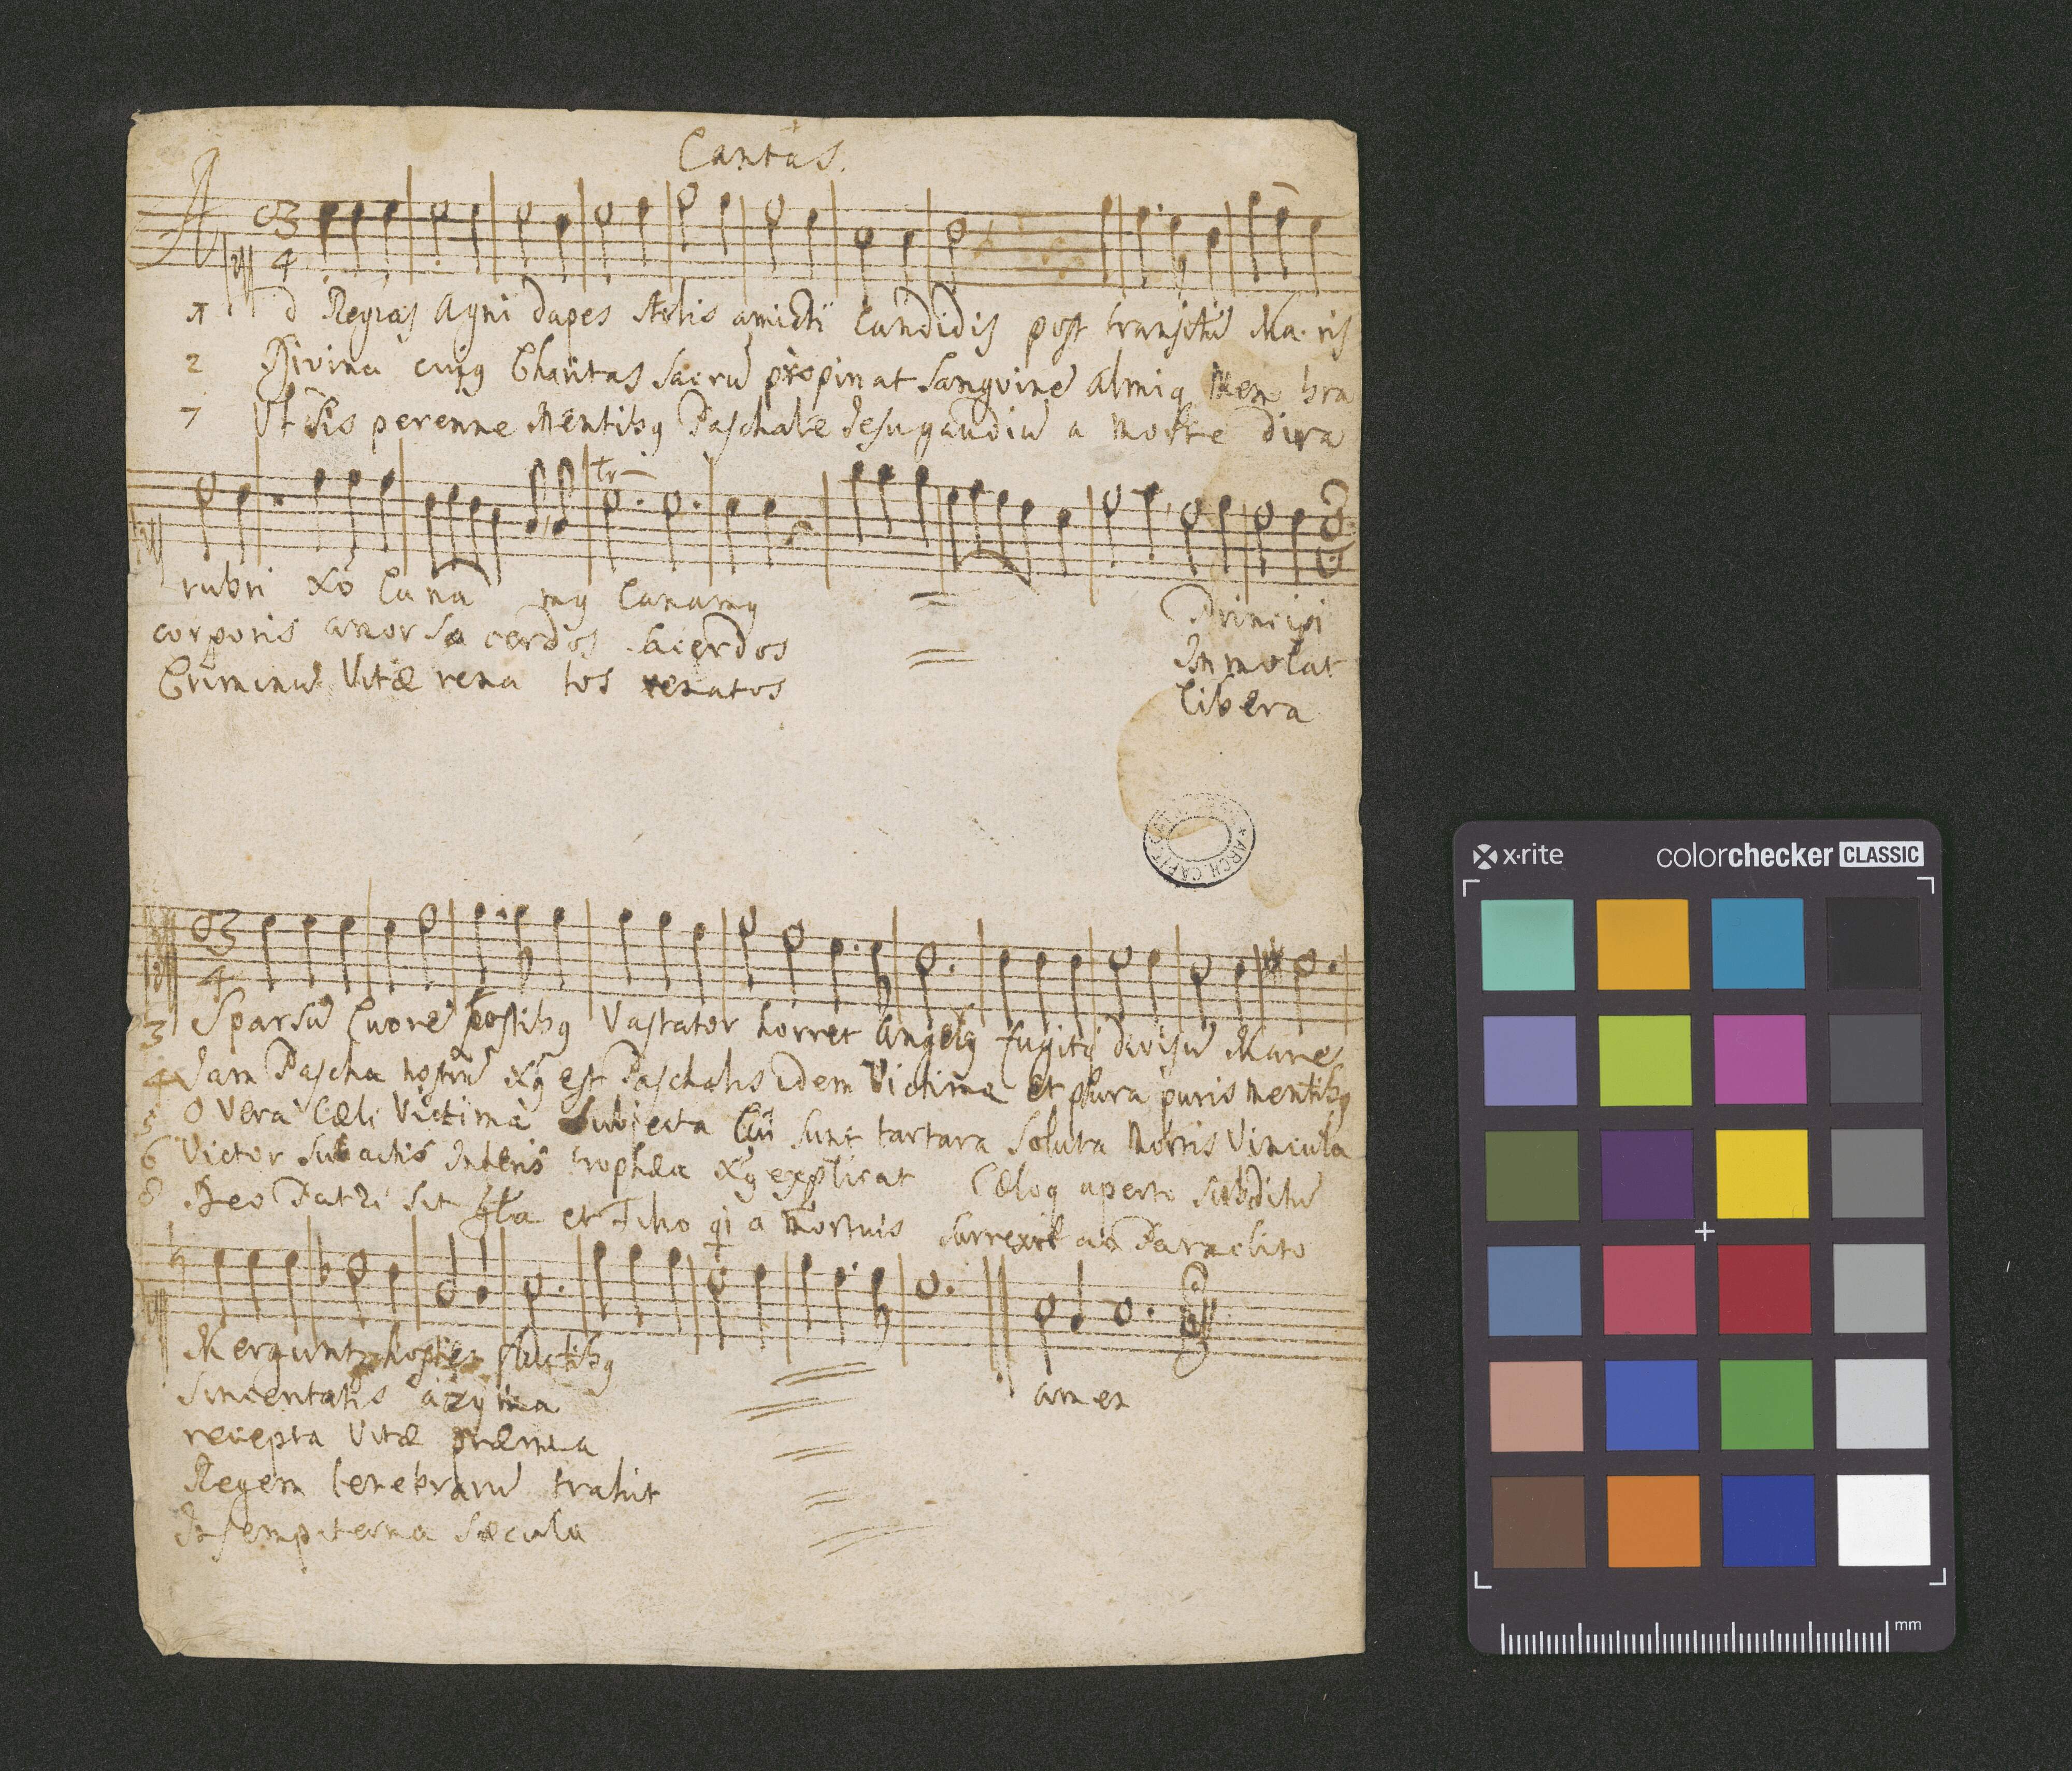 Cantus.
A
3
4
1 d Regias Agni dapes stolis amicti Candidis post transitũ Ma. ris
2 Divina cuiꝯ Charitas sacrũ propinat Sanguinẽ almiq Mem bra
7 Ut sis perenne Mentibꝯ Paschale Jesu gaudiũ a morte dira
tr
rubri xõ Cana mꝯ Canamꝯ = Principi
corporis amor sa cerdos sacerdos = Immolat
Criminũ Vitæ rena tos renatos libera
3
4
3 Sparsũ Cruorẽ postibꝯ Vastator horret Angelꝯ fugitq divisũ Mare
4 Jam Pascha nostrũ xꝯ est Paschalis idem Victima et pura puris mentibꝯ
5 O Vera Cæli Victima Subiecta Cui sunt tartara soluta mortis Vincula
6 Victor subactis Inferis trophæa xꝯ explicat Cæloq aperto subditũ
8 Deo Patri sit gla et Filio qi a mortuis surrexit ac Paraclito
Mergunt hostes fluctibꝯ =
Sinceritatis azyma = amen
recepta Vitæ præmia =
Regem tenebrarũ trahit =
In sempiterna sæcula =
ARCH. CAPIT.
x·rite colorchecker CLASSIC
mm